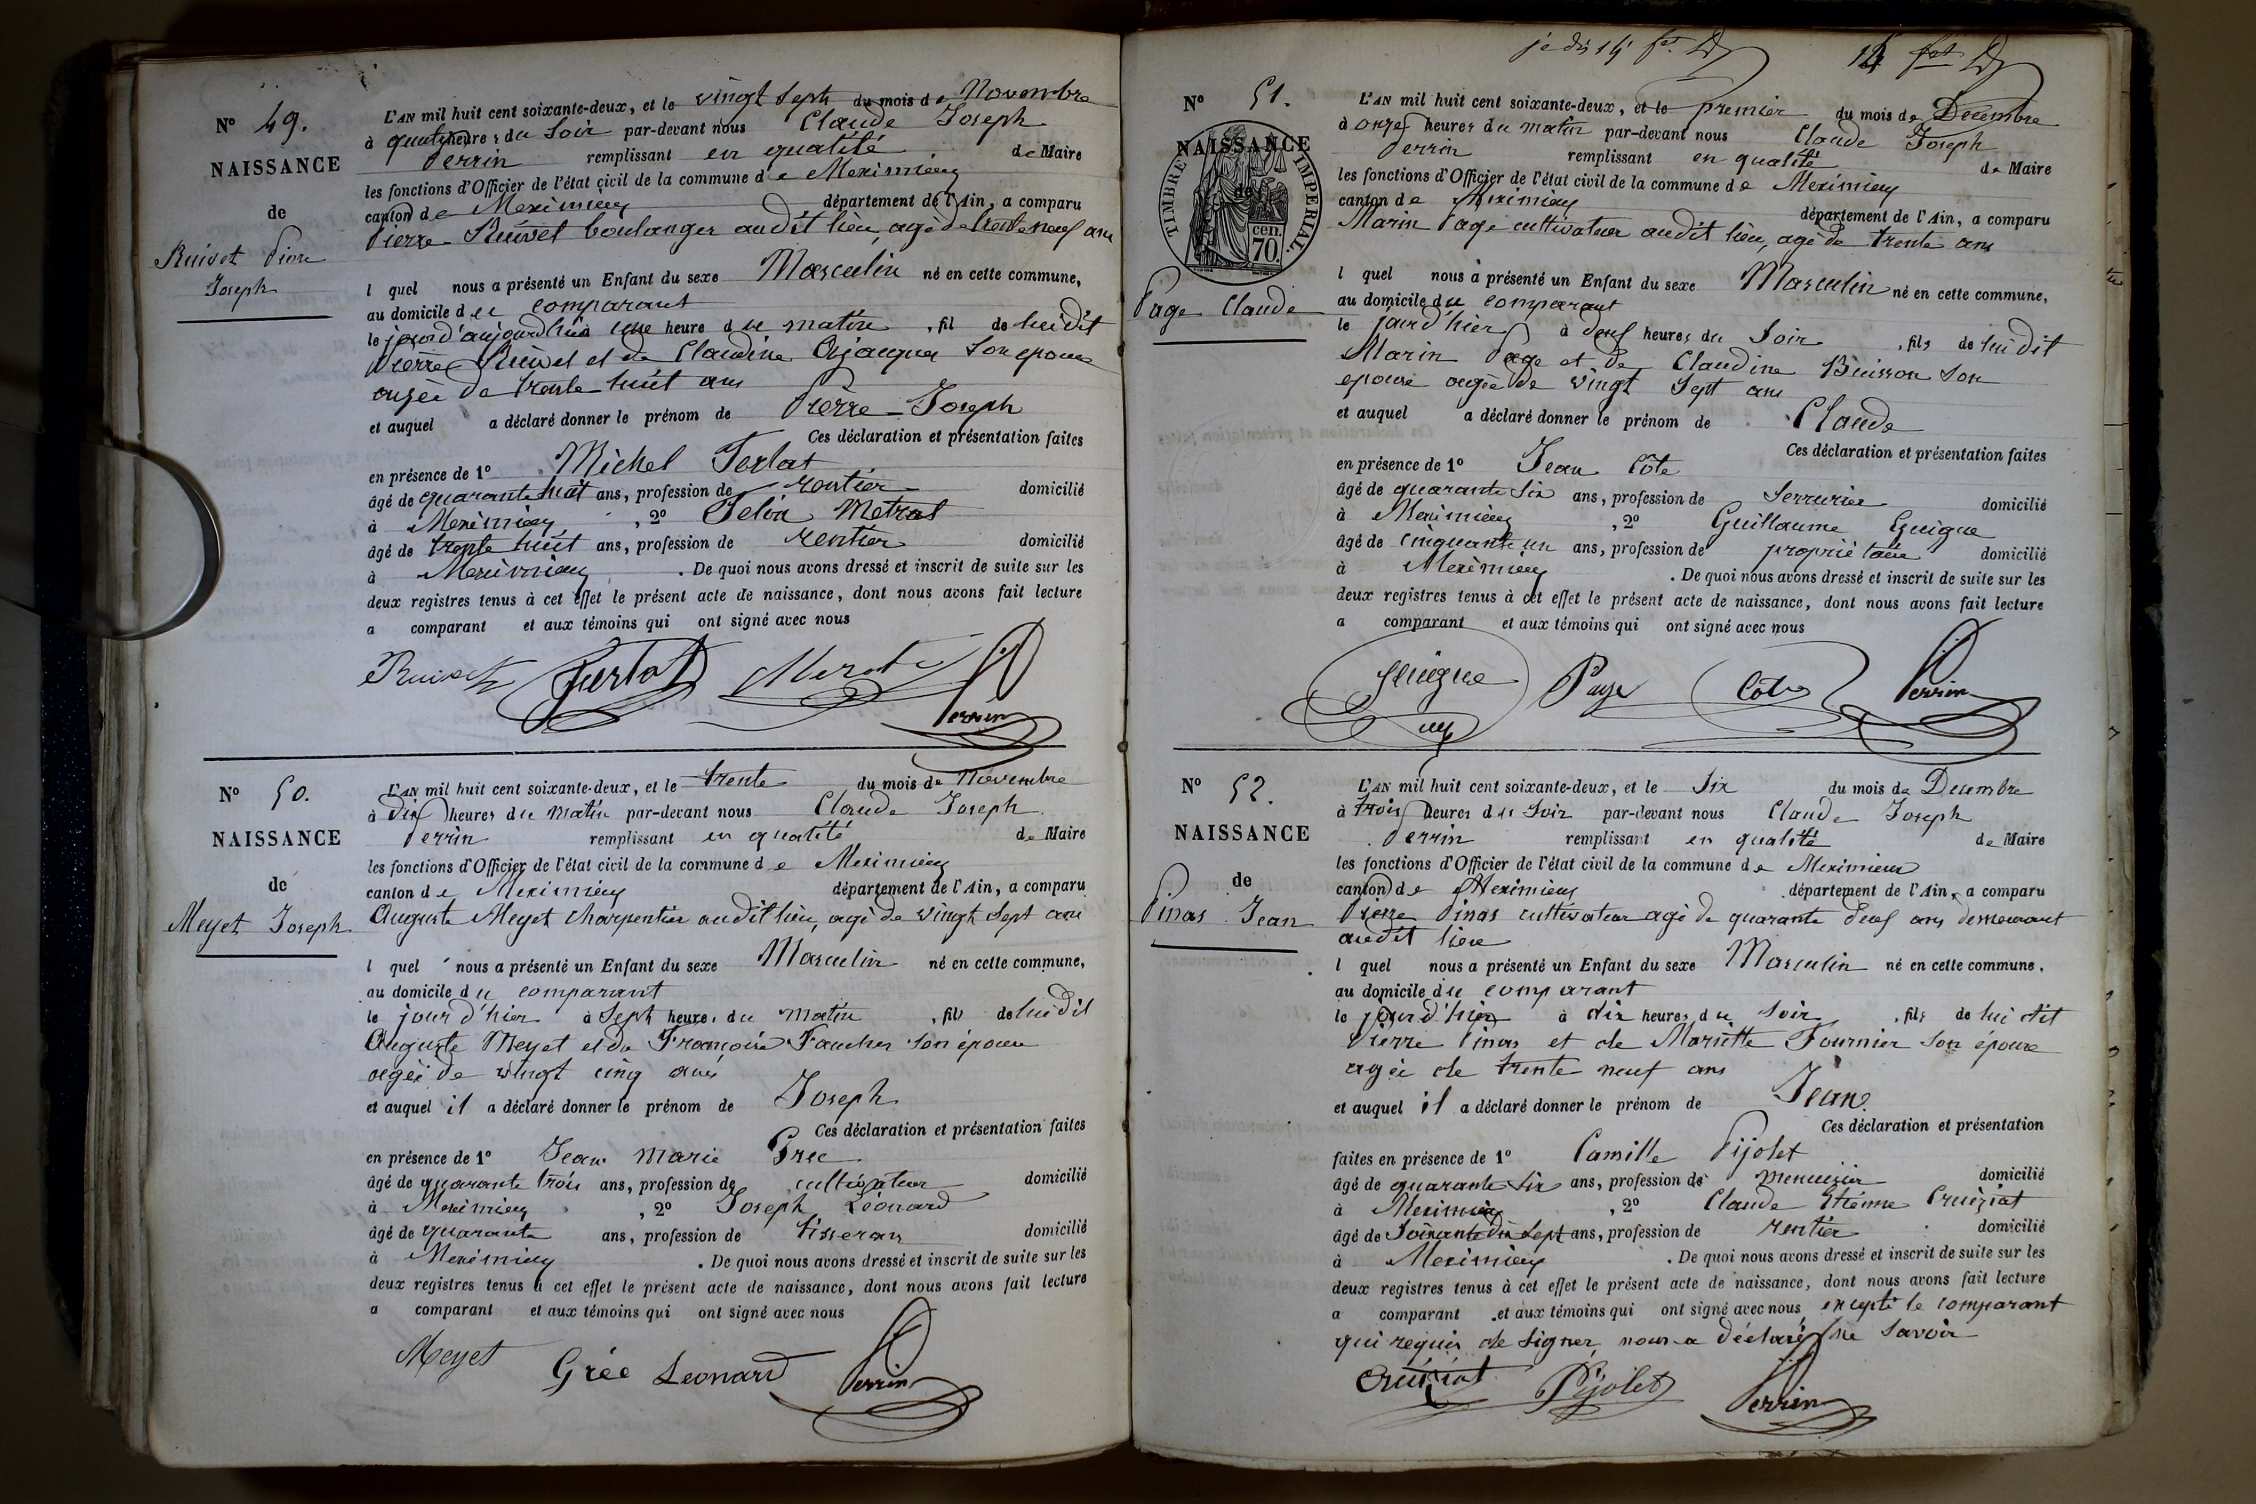 Nº 49.
NAISSANCE
de
Ruivet Pierre
Joseph
L'AN mil huit cent soixante-deux, et le vingt sept du mois de Novembre
à quatre heures du Soir par-devant nous Claude Joseph
Perrin remplissant en qualité de Maire
les fonctions d'Officier de l'état civil de la commune de Meximieux
canton de Meximieux département de l'Ain, a comparu
Pierre Ruivet boulanger audit lieu, agé de trente neuf ans
l quel nous a présenté un Enfant du sexe Masculin né en cette commune,
au domicile du comparant
le jour d'aujourd'hui à une heure du matin, fil de lui dit
Pierre Ruivet et de Claudine son épouse
agée de trente huit ans
et auquel a déclaré donner le prénom de Pierre Joseph
Ces déclaration et présentation faites
en présence de 1º Michel Ferlat
âgé de quarante huit ans, profession de rentier domicilié
à Meximieux, 2º Metral
âgé de trente huit ans, profession de rentier domicilié
à Meximieux. De quoi nous avons dressé et inscrit de suite sur les
deux registres tenus à cet effet le présent acte de naissance, dont nous avons fait lecture
a comparant et aux témoins qui ont signé avec nous
Ruivet Ferlat Perrin
Nº 50.
NAISSANCE
de
Meyet Joseph
L'AN mil huit cent soixante-deux, et le trente du mois de Novembre
à dix heures du matin par-devant nous Claude Joseph
Perrin remplissant en qualité de Maire
les fonctions d'Officier de l'état civil de la commune de Meximieux
canton de Meximieux département de l'Ain, a comparu
Auguste Meyet charpentier audit lieu, agé de vingt sept ans
l quel nous a présenté un Enfant du sexe Masculin né en cette commune,
au domicile du comparant
le jour d'hier à Sept heures du Matin, fils de lui dit
Auguste Meyet et de Françoise Faucher son épouse
agée de vingt cinq ans
et auquel il a déclaré donner le prénom de Joseph
Ces déclaration et présentation faites
en présence de 1º Jean Marie Grée
âgé de quarante trois ans, profession de cultivateur domicilié
à Meximieux, 2º Joseph Léonard
âgé de quarante ans, profession de tisseran domicilié
à Meximieux. De quoi nous avons dressé et inscrit de suite sur les
deux registres tenus à cet effet le présent acte de naissance, dont nous avons fait lecture
a comparant et aux témoins qui ont signé avec nous
Meyet Grée Leonard Perrin
je dis 14
14
Nº 51.
NAISSANCE
de
TIMBRE IMPERIAL
70 cen.
Page Claude
L'AN mil huit cent soixante-deux, et le premier du mois de Decembre
à onze heures du matin par-devant nous Claude Joseph
Perrin remplissant en qualité de Maire
les fonctions d'Officier de l'état civil de la commune de Meximieux
canton de Meximieux département de l'Ain, a comparu
Marin Page cultivateur audit lieu, agé de trente ans
l quel nous a présenté un Enfant du sexe Masculin né en cette commune,
au domicile du comparant
le jour d'hier à deux heures du Soir, fils de lui dit
Marin Page et de Claudine Buisson son
épouse agée de vingt sept ans
et auquel a déclaré donner le prénom de Claude
Ces déclaration et présentation faites
en présence de 1º Jean Côte
âgé de quarante six ans, profession de Serrurier domicilié
à Meximieux, 2º Guillaume Eguigue
âgé de cinquante un ans, profession de propriétaire domicilié
à Meximieux. De quoi nous avons dressé et inscrit de suite sur les
deux registres tenus à cet effet le présent acte de naissance, dont nous avons fait lecture
a comparant et aux témoins qui ont signé avec nous
Page Côte Perrin
Nº 52.
NAISSANCE
de
Pinas Jean
L'AN mil huit cent soixante-deux, et le Six du mois de Decembre
à trois heures du Soir par-devant nous Claude Joseph
Perrin remplissant en qualité de Maire
les fonctions d'Officier de l'état civil de la commune de Meximieux
canton de Meximieux département de l'Ain, a comparu
Pierre Pinas cultivateur agé de quarante deux ans demeurant
audit lieu
l quel nous a présenté un Enfant du sexe Masculin né en cette commune.
au domicile du comparant
le jour d'hier à dix heures du soir, fils de lui dit
Pierre Pinas et de Mariette Fournier son épouse
agée de trente neuf ans
et auquel il a déclaré donner le prénom de Jean
Ces déclaration et présentation
faites en présence de 1º Camille Pijolet
âgé de quarante six ans, profession de menuisier domicilié
à Meximieux, 2º Claude Etienne Cruiziat
âgé de Soixante dix sept ans, profession de rentier domicilié
à Meximieux. De quoi nous avons dressé et inscrit de suite sur les
deux registres tenus à cet effet le présent acte de naissance, dont nous avons fait lecture
a comparant et aux témoins qui ont signé avec nous, excepté le comparant
qui requis de signer, nous a déclaré ne savoir
Cruiziat Pijolet Perrin